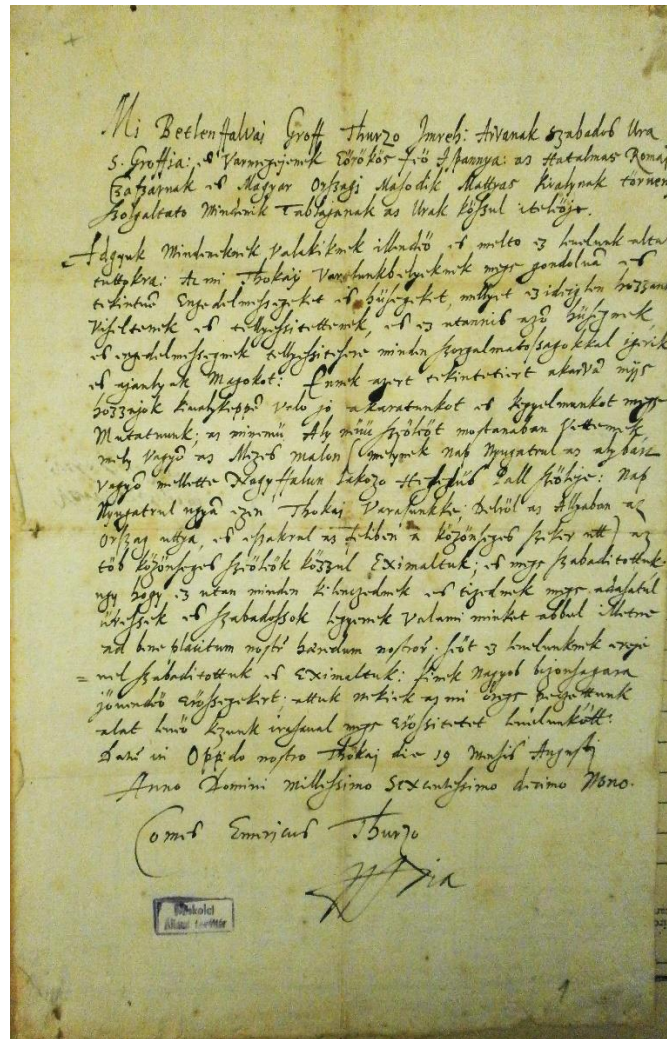 Mi Betlenfalvai Groff Thurzo Imreh: Arvanak szabados Ura
s. Groffia: es Varmegiejenek Eörökös Feö Ispannya: az Hatalmas Romaj
Czaszarnak es Magyar Orszagi Masodik Mattyas Kiralynak törveny
szolgaltato Mindenik Tablajanak az Urak közzul itelöje.
Adgyuk Mindeneknek, valakiknek illendeö es melto ez levelunk altal
tuttokra: Az mi Thokaij Varosunkbelyeknek megh gondolva es
tekintve Engedelmessegeket es hüsegeket, mellyet ez ideiglen hozzank
viseltenek es tellyessitettenek, es ez utannis azon hüsegnek
es engedelmessegnek tellyesitesere minden szorgalmatossagokkal igerik
es ajanlyak Magokot: Ennek azert tekintetiert akarva mijs
hozzajok kivalykeppen valo jo akaratunkot es kegyelmunket megh
Mutatnunk; az minemü Aly nevü szölöt mostanaban vettenek
mely vagyon az Mezes malon (melynek nap Nyugatrul az alyban
vagyon mellette Nagyfalun lakozo Hegedüs Pall szöleje: Nap
Nyugatrul ugyan ezen Thokaj Varasunkke; Delröl az Allyaban az
Orszag uttya, es eszakrul az feliben a közönseges szeker utt) az
töb közönseges szölök közzul Eximaltuk; es megh szabaditottuk
ugy hogy ez utan minden kilenczednek es tizednek megh adasatul
üressek es szabadossok legyenek valami minket abbul illetne
ad bene placitum nostrum haeredum nostrorum; söt ez levelunknek erejevel
szabaditottuk es Eximaltuk: kinek nagyob bizonsagara
jövendö erössegekert; attuk nekiek az mi öregh pecsettunk
alat leveö kezunk irasaval megh erössitetet levelunkött.
Datum in Oppido nostro Thokaj die 19 Mensis Augusti
Anno Domini Millessimo Sexcentessimo decimo Nono.
Comes Emericus Thurzo
Miskolci
Állami Levéltár
1